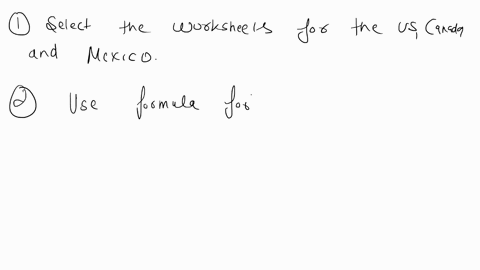 ① Select the worksheets for the US, Canada
and Mexico.
② Use formula for